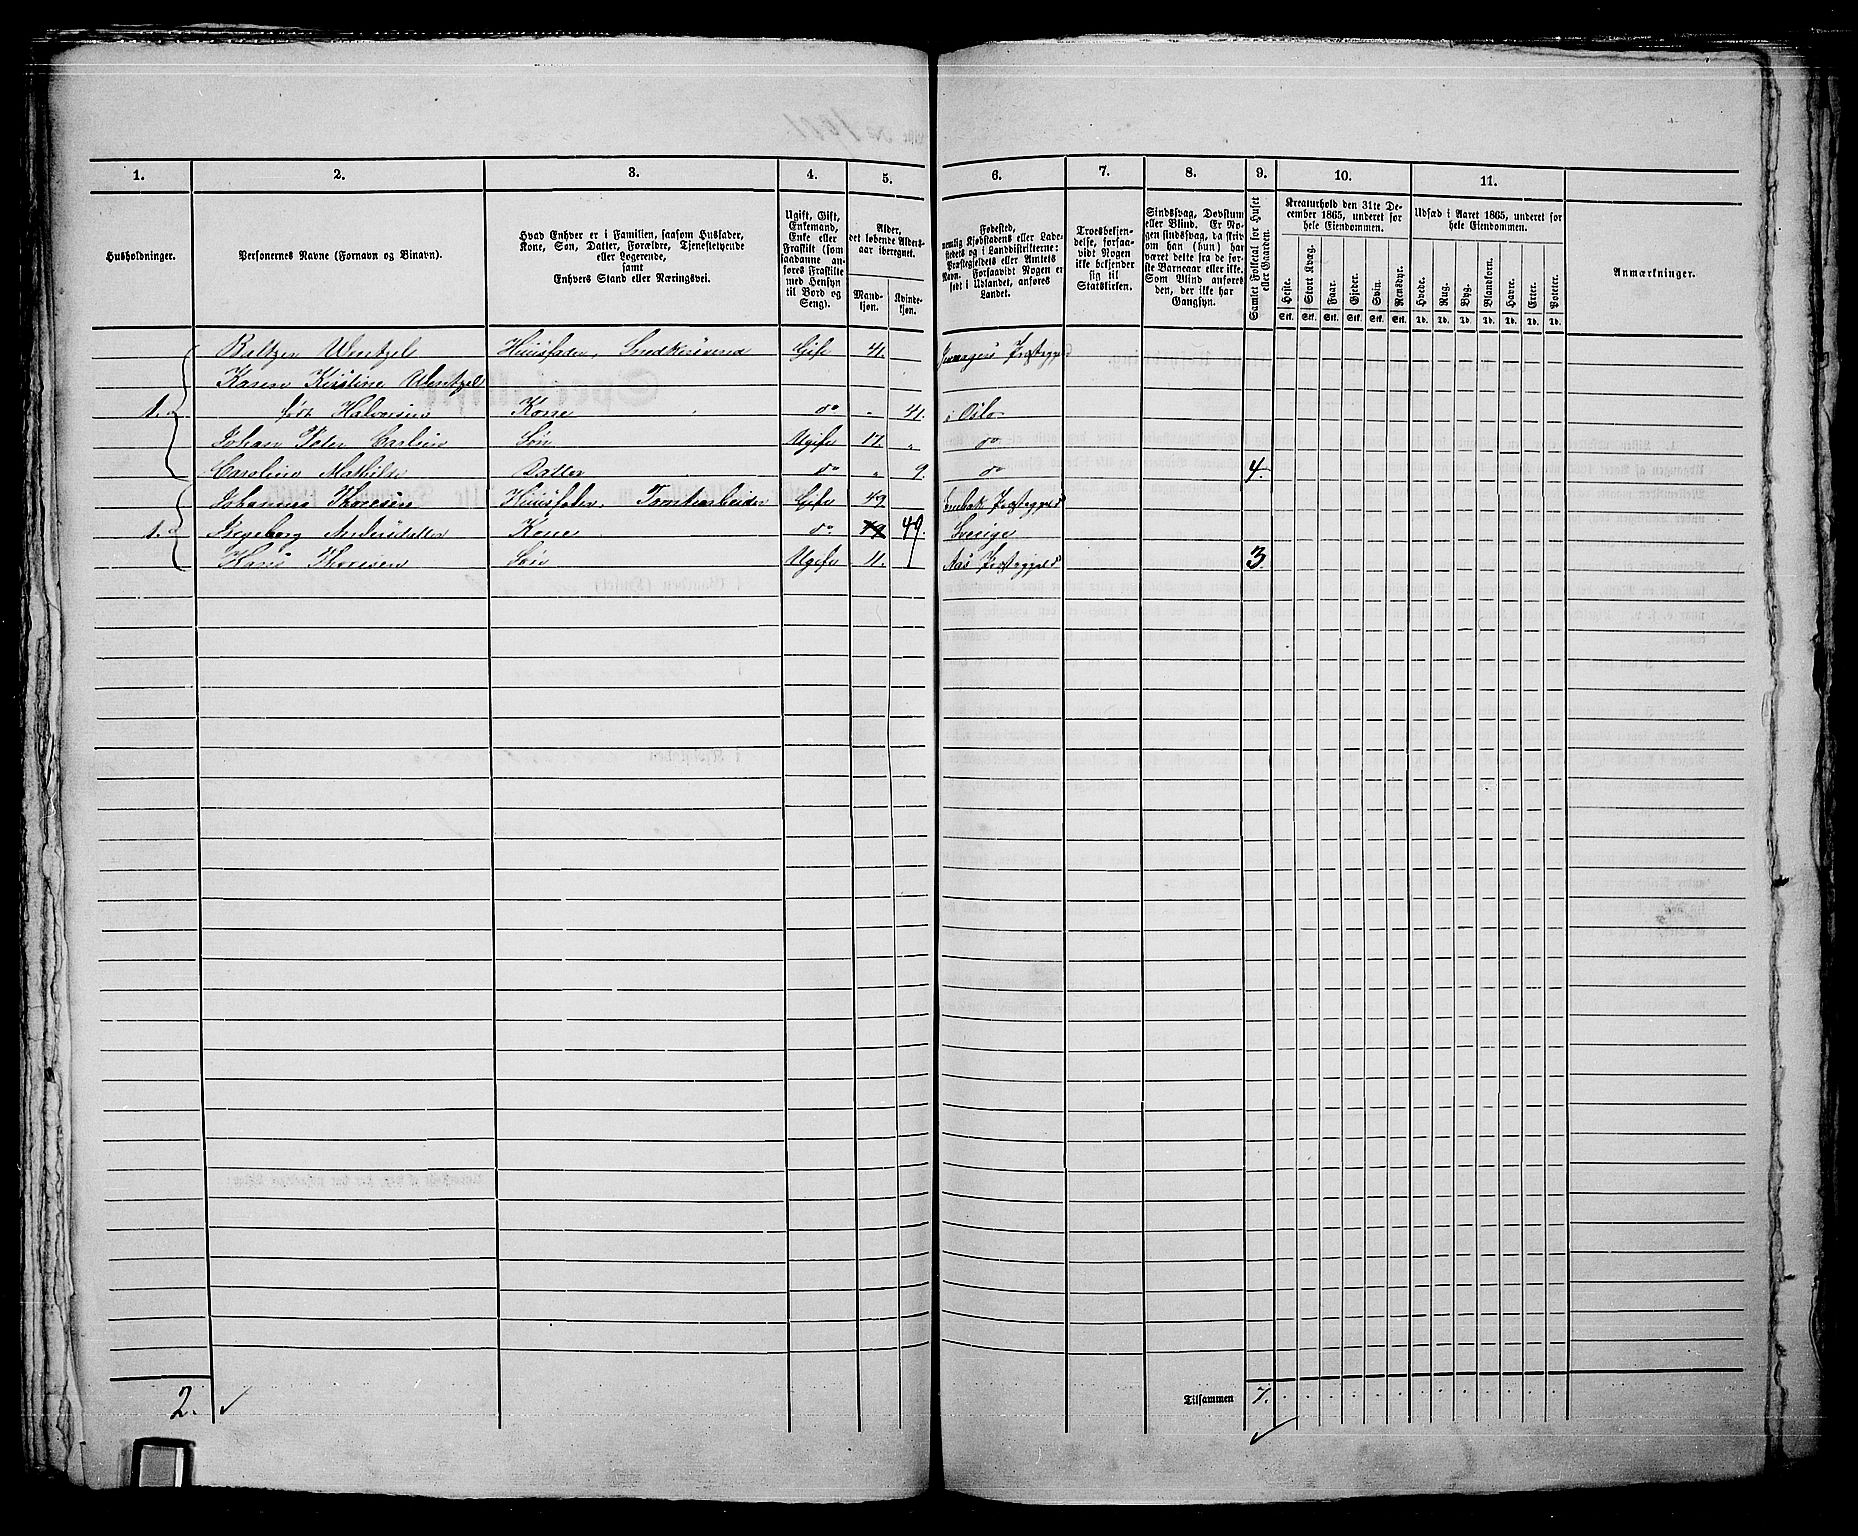 1. 2. 3. 4. 5. 6. 7. 8. 9. 10. 11.
Husholdninger.
Personernes Navne (Fornavn og Binavn).
Hvad Enhver er i Familien, saasom Husfader,
Kone, Søn, Datter, Forældre, Tjenestetyende
eller Logerende,
samt
Enhvers Stand eller Næringsvei.
Ugift, Gift,
Enkemand,
Enke eller
Fraskilt (som
saadanne an-
føres Fraskilte
med Hensyn
til Bord og
Seng).
Alder,
det løbende Alders-
aar iberegnet.
Mand-
kjøn.
Kvinde-
kjøn.
Fødested,
nemlig Kjøbstadens eller Lade-
stedets og i Landdistrikterne:
Præstegjeldets eller Amtets
Navn. Forsaavidt Nogen er
født i Udlandet, anføres
Landet.
Troesbekjen-
delse, forsaa-
vidt Nogen
ikke bekjender
sig til
Statskirken.
Sindssvag, Døvstum
eller Blind. Er No-
gen sindssvag, da skriv
om han (hun) har
været dette fra de før-
ste Barneaar eller ikke.
Som Blind anføres
den, der ikke har
Gangsyn.
Samlet Folketal for Huset
eller Gaarden.
Kreaturhold den 31te De-
cember 1865, underet for
hele Eiendommen.
Heste. Stort Kvæg. Faar. Gjeder. Svin. Rensdyr.
Stk. Stk. Stk. Stk. Stk. Stk.
Udsæd i Aaret 1865, underet for
hele Eiendommen.
Hvede. Rug. Byg. Blandkorn. Havre. Erter. Poteter.
Td. Td. Td. Td. Td. Td. Td.
Anmærkninger.
Baltzer Wentzel Huusfader, Snedkersvend Gift 41. Præstegjeld
Karen Kirstine Wentzel
1. født Halvorsen Kone do " 41. Oslo
Johan Peter Søn Ugift 17. " do
Caroline Mathilde Datter do " 9. do 4.
Johannes Thoresen Huusfader, Gift 49 Enebak Præstegjeld
1. Ingeborg Andersdatter Kone do 49. Sverige
Hans Thoresen Søn Ugift 11. Aas Præstegjeld 3
2.
Tilsammen 7.